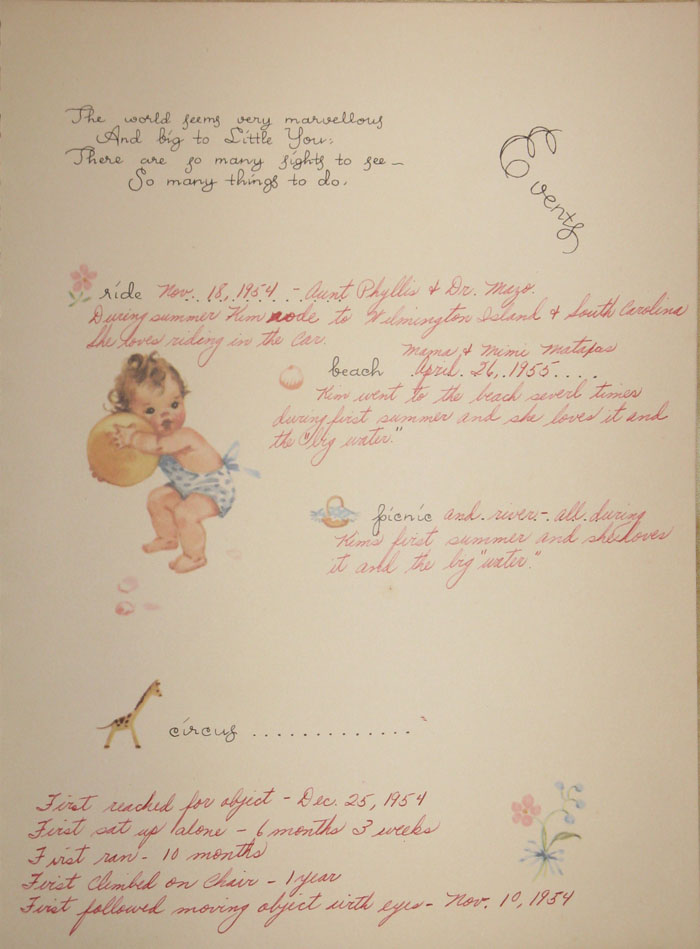 The world seems very marvellous
And big to Little You;
There are so many sights to see—
So many things to do.
Events
ride Nov. 18, 1954 - Aunt Phyllis & Dr. Mazo.
During summer Kim rode to Wilmington Island & South Carolina
She loves riding in the car.
Mama & Mimi Matapas
beach April 26, 1955....
Kim went to the beach severl times
during first summer and she loves it and
the "big water."
picnic and river - all during
Kims first summer and she loves
it and the big "water."
circus .............
First reached for object - Dec. 25, 1954
First sat up alone - 6 months 3 weeks
First ran - 10 months
First Climbed on Chair - 1 year
First followed moving object with eyes - Nov. 10, 1954